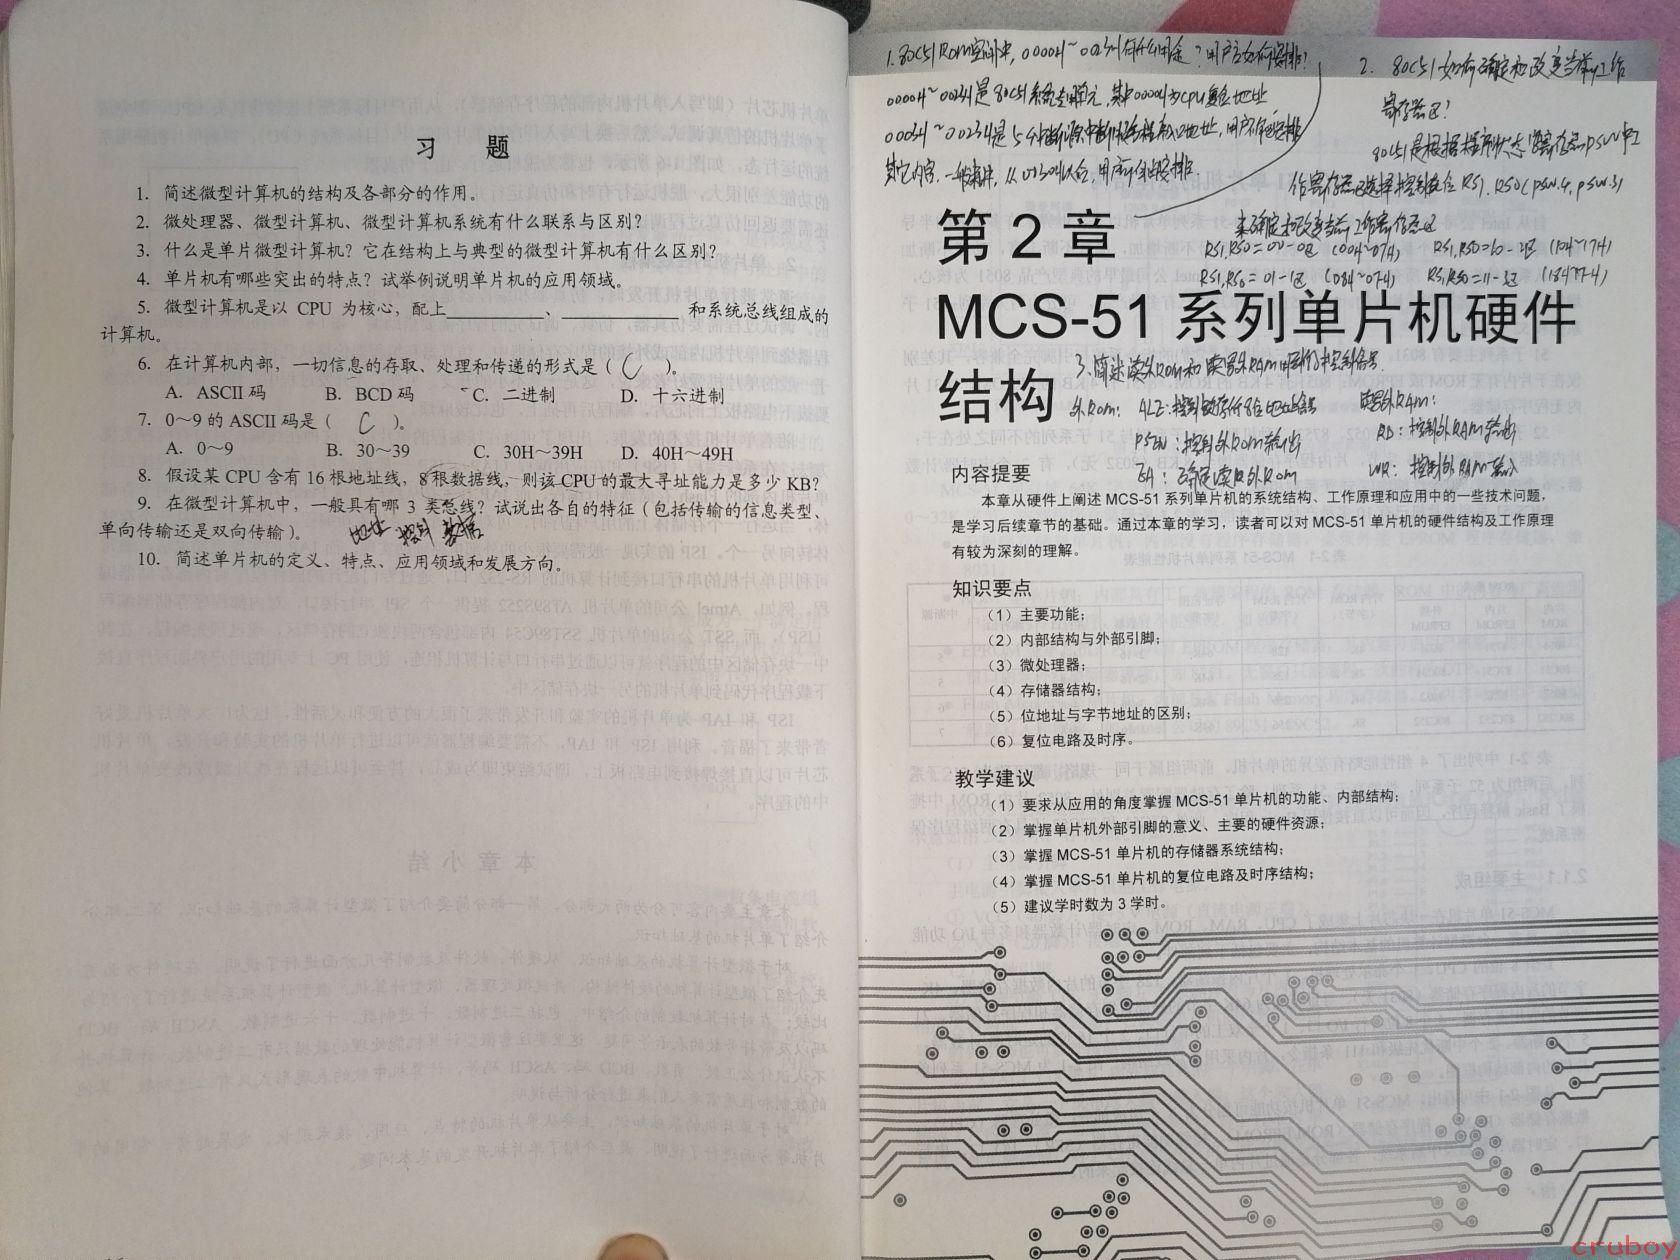 习 题
1. 简述微型计算机的结构及各部分的作用。
2. 微处理器、微型计算机、微型计算机系统有什么联系与区别?
3. 什么是单片微型计算机? 它在结构上与典型的微型计算机有什么区别?
4. 单片机有哪些突出的特点? 试举例说明单片机的应用领域。
5. 微型计算机是以 CPU 为核心，配上__________、____________ 和系统总线组成的
计算机。
6. 在计算机内部，一切信息的存取、处理和传递的形式是 ( C )。
A. ASCII 码 B. BCD 码 C. 二进制 D. 十六进制
7. 0～9 的 ASCII 码是 ( C )。
A. 0～9 B. 30～39 C. 30H～39H D. 40H～49H
8. 假设某 CPU 含有 16 根地址线，8 根数据线，则该 CPU 的最大寻址能力是多少 KB?
9. 在微型计算机中，一般具有哪 3 类总线? 试说出各自的特征 (包括传输的信息类型、
单向传输还是双向传输)。 地址 控制 数据
10. 简述单片机的定义、特点、应用领域和发展方向。
1. 80C51 ROM空间中, 0000H~0023H有什么用途? 用户应如何安排?
0000H~0023H是80C51系统专用单元, 其中0000H为CPU复位地址,
2. 80C51如何确定和改变当前工作
寄存器区?
80C51是根据程序状态字寄存器PSW中工
作寄存器区选择控制位 RS1、RS0(PSW.4, PSW.3)
来确定和改变当前工作寄存器区
RS1,RS0=00-0区 (00H~07H) RS1,RS0=10-2区 (10H~17H)
第 2 章
MCS-51 系列单片机硬件
结构
3. 简述读外ROM和读写外RAM
外ROM: ALE: 控制锁存低位地址 读写外RAM:
PSEN: 控制外ROM输出 RD: 控制外RAM输出
EA: 确定读内外ROM WR: 控制外RAM输入
内容提要
本章从硬件上阐述 MCS-51 系列单片机的系统结构、工作原理和应用中的一些技术问题，
是学习后续章节的基础。通过本章的学习，读者可以对 MCS-51 单片机的硬件结构及工作原理
有较为深刻的理解。
知识要点
（1）主要功能；
（2）内部结构与外部引脚；
（3）微处理器；
（4）存储器结构；
（5）位地址与字节地址的区别；
（6）复位电路及时序。
教学建议
（1）要求从应用的角度掌握 MCS-51 单片机的功能、内部结构；
（2）掌握单片机外部引脚的意义、主要的硬件资源；
（3）掌握 MCS-51 单片机的存储器系统结构；
（4）掌握 MCS-51 单片机的复位电路及时序结构；
（5）建议学时数为 3 学时。
cruboy